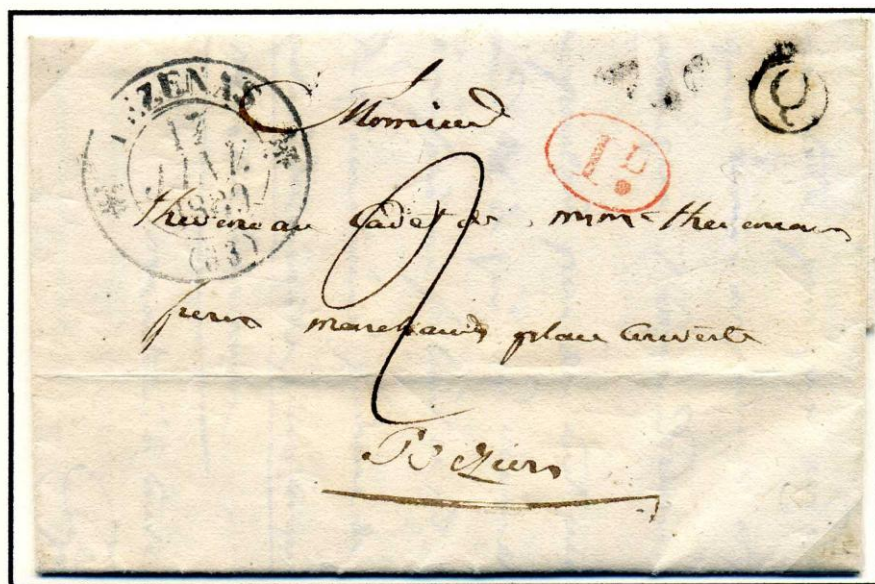 PEZENAS
17
JANV
(33)
Q
1 L
Monsieur
theveneau Cadet de mm theveneau
freres marchands place Couverte
2
Beziers